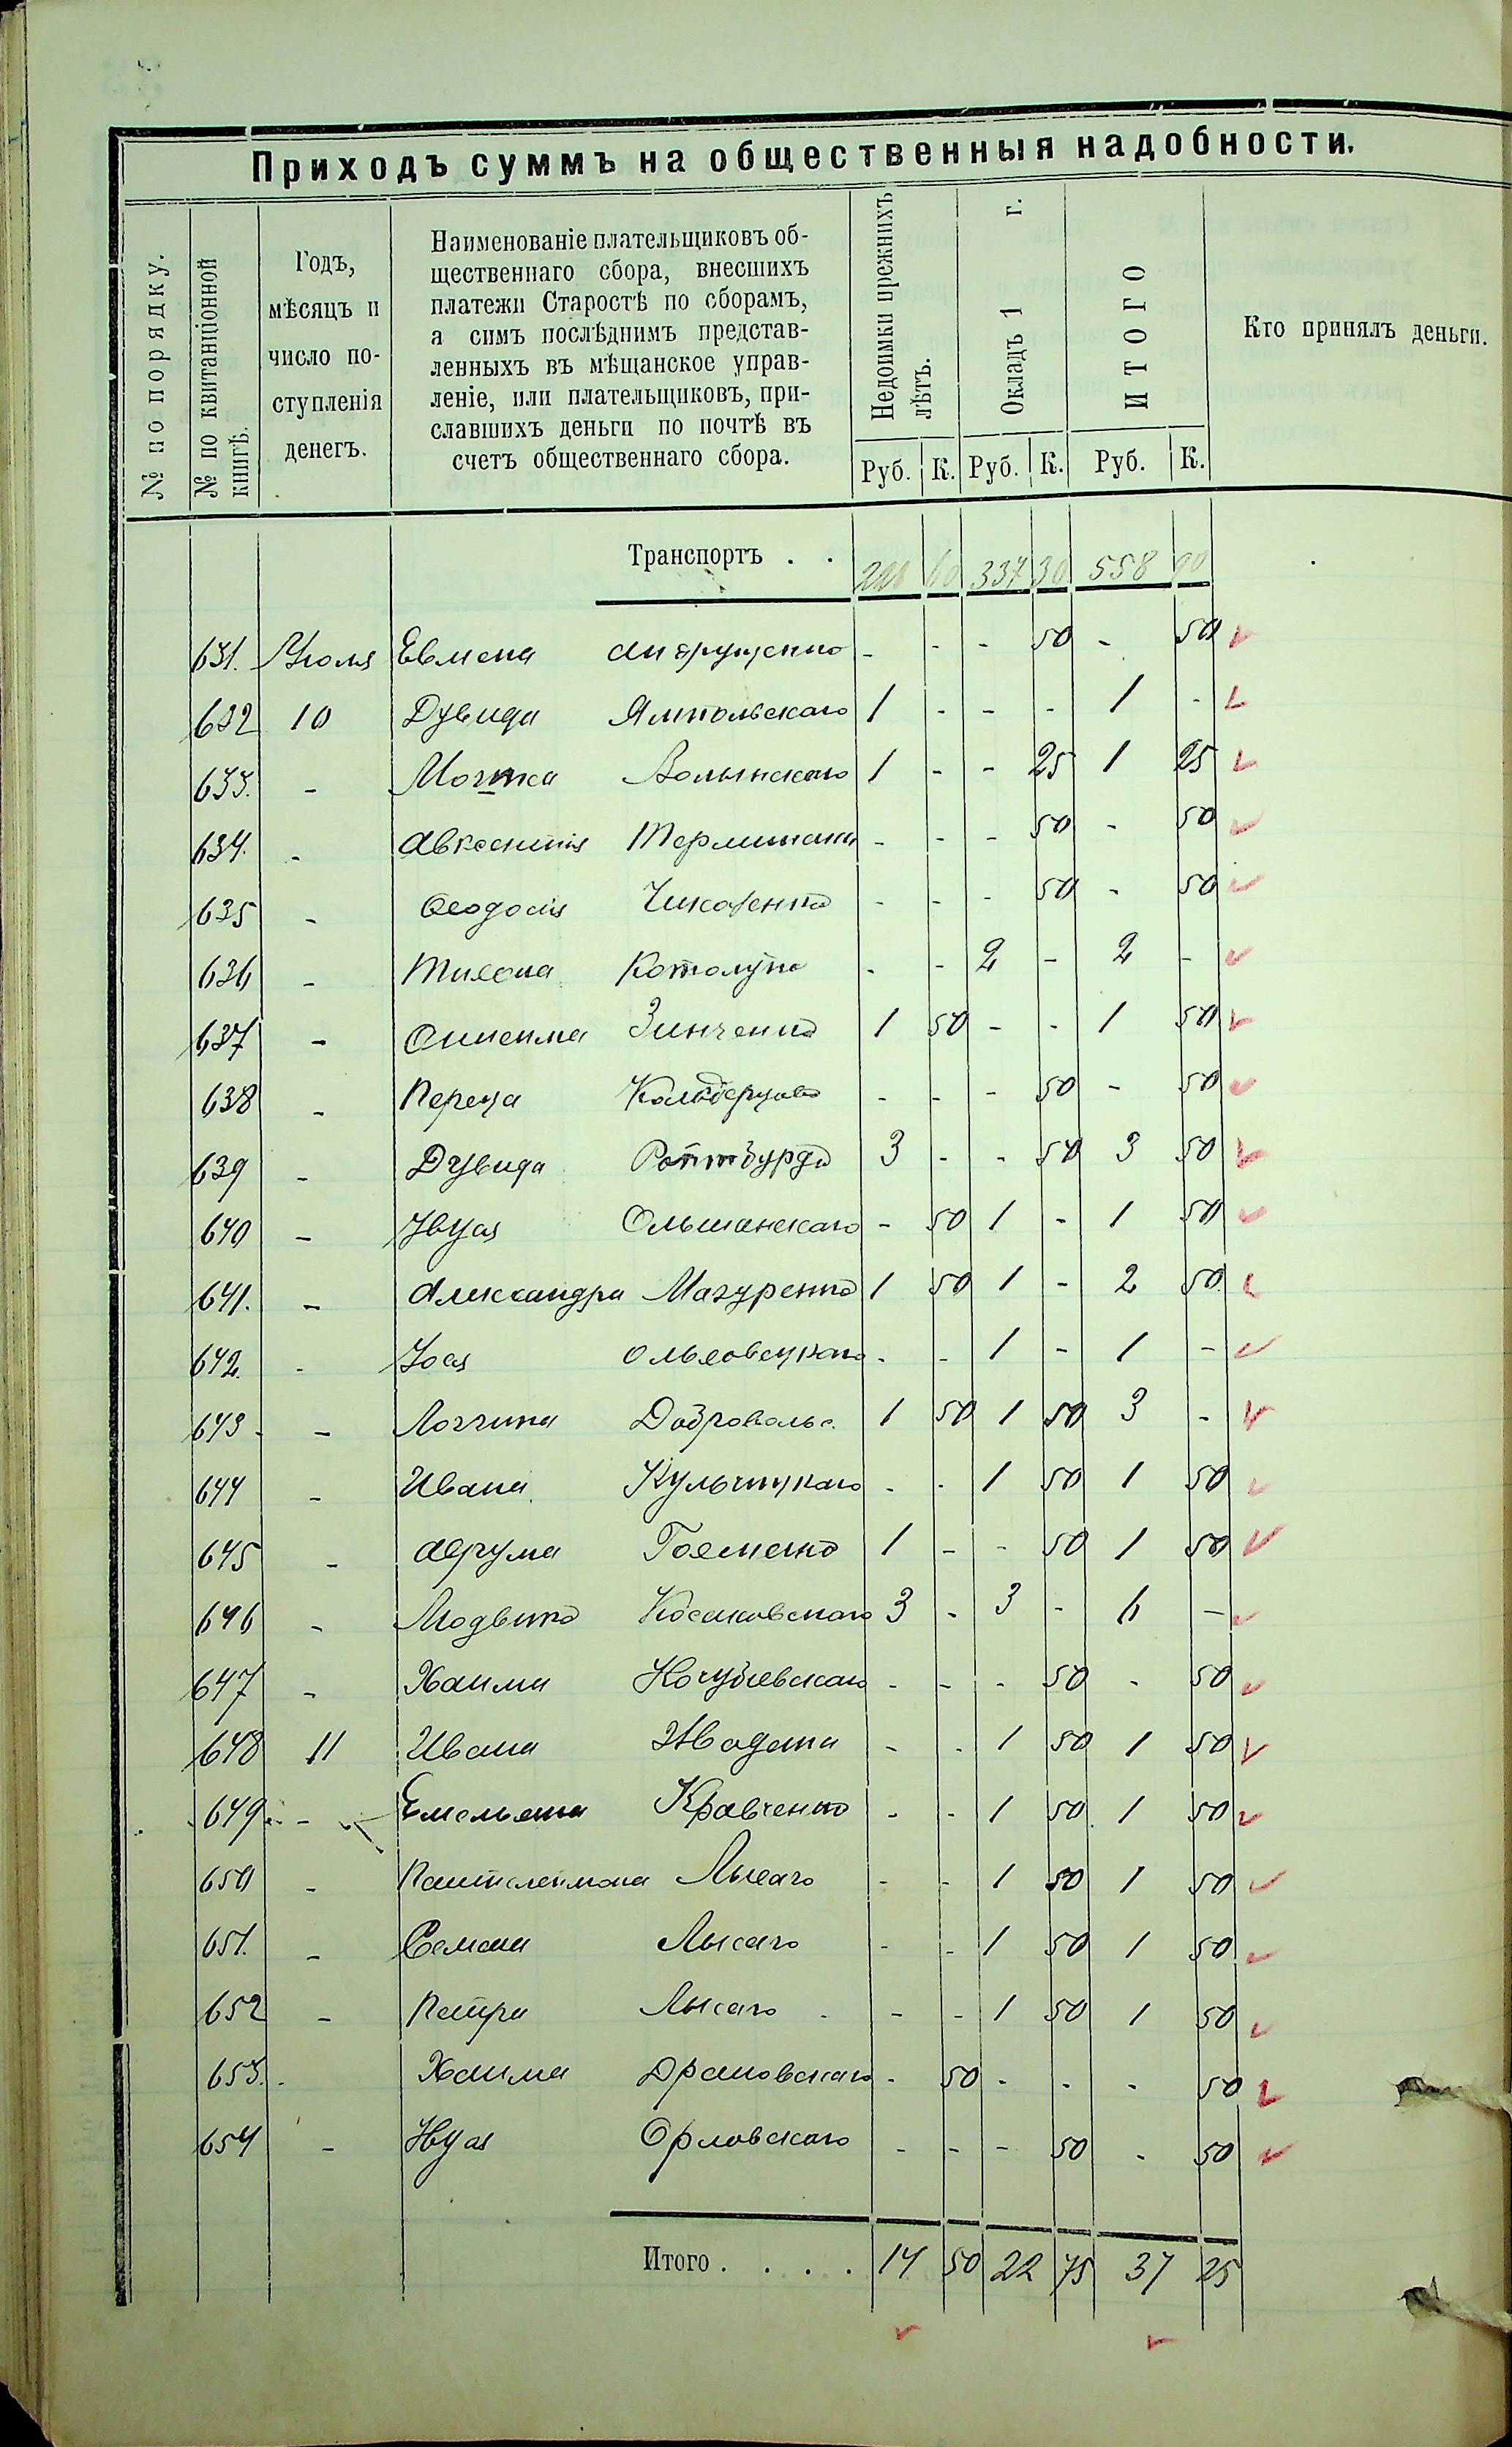 Приходъ суммъ на общественныя надобности.
№ по порядку.
№ по квитанціонной книгѣ.
Годъ,
мѣсяцъ и
число по-
ступленія
денегъ.
Наименованіе плательщиковъ об-
щественнаго сбора, внесшихъ
платежи Старостѣ по сборамъ,
а симъ послѣднимъ представ-
ленныхъ въ мѣщанское управ-
леніе, или плательщиковъ, при-
славшихъ деньги по почтѣ въ
счетъ общественнаго сбора.
Недоимки прежнихъ лѣтъ.
Окладъ 1 г.
ИТОГО
Кто принялъ деньги.
Руб. К. Руб. К. Руб. К.
Транспортъ . . 337 30 558 90
631. Июля Евмена Андрущенко - - - 50 - 50
632 10 Дувида Ямпольскаго 1 - - - 1 -
633. - Мошка Волынскаго 1 - - 25 1 25
634. - Авксентія - - - 50 - 50
635 - Ѳеодосія - - - 50 - 50
636 - - - 2 - 2 -
637 - Онисима Зинченко 1 50 - - 1 50
638 - Переца - - - 50 - 50
639 - Дувида 3 - - 50 3 50
640 - Ольшанскаго - 50 1 - 1 50
641. - Александра Мазуренко 1 50 1 - 2 50
642. - - - 1 - 1 -
643 - Логгина Добровольс. 1 50 1 50 3 -
644 - Ивана Кульчицкаго - - 1 50 1 50
645 - Аврума 1 - - 50 1 50
646 - 3 - 3 - 6 -
647 - Хаима Кочубіевскаго - - - 50 - 50
648 11 Ивана - - 1 50 1 50
649 - Емельяна Кравченко - - 1 50 1 50
650 - Пантелеимона Лысаго - - 1 50 1 50
651. - Семена Лысаго - - 1 50 1 50
652 - Петра Лысаго - - 1 50 1 50
653. - Хаима - 50 - - - 50
654 - Орловскаго - - - 50 - 50
Итого . . . . 14 50 22 75 37 25